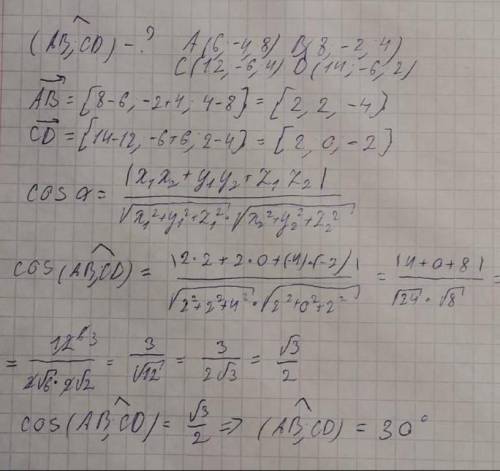 (AB,^CD) - ? A(6, -4, 8) B(8, -2, 4)
C(12, -6, 4) D(14; -6, 2)
AB = {8-6, -2+4, 4-8} = {2, 2, -4}
CD = {14-12, -6+6, 2-4} = {2, 0, -2}
cos α = |x₁x₂ + y₁y₂ + z₁z₂| / √(x₁²+y₁²+z₁²) · √(x₂²+y₂²+z₂²)
cos(AB,^CD) = |2·2 + 2·0 + (-4)·(-2)| / √(2²+2²+4²) · √(2²+0²+2²) = |4+0+8| / √24 · √8 =
= 12 6 3 / 2√6 · 2√2 = 3 / √12 = 3 / 2√3 = √3 / 2
cos(AB,^CD) = √3 / 2 => (AB,^CD) = 30°